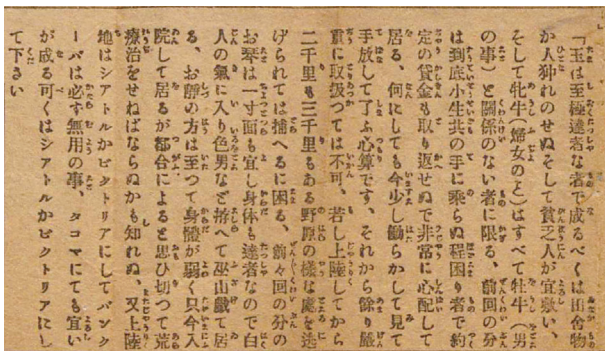 「玉は至極達者な者で成るべくは田舎物
か人摺れのせぬそして貧乏人が宜敷い、
そして牝牛（婦女のと）はすべて牡牛（男
の事）と關係のない者に限る、前回の分
は到底小生共の手に乘らぬ程困り者で約
定の貸金も取り返せぬで非常に心配して
居る、何にしても今少し働らかして見て
手放して了ふ心算です、それから餘り嚴
重に取扱つては不可、若し上陸してから
二千里も三千里もある野原の樣な處を逃
げられては捕へるに困る、前々回の分の
お琴は一寸面も宜し身体も達者なので白
人の氣に入り色男など拵へて巫山戯て居
る、お靜の方は至つて身體が弱く只今入
院して居るが都合によると思ひ切つて荒
療治をせねばならぬかも知れぬ、又上陸
地はシアトルかビクトリアにしてバンク
ーバは必す無用の事、タコマにても宜い
が成る可くはシアトルかビクトリアにし
て下さい